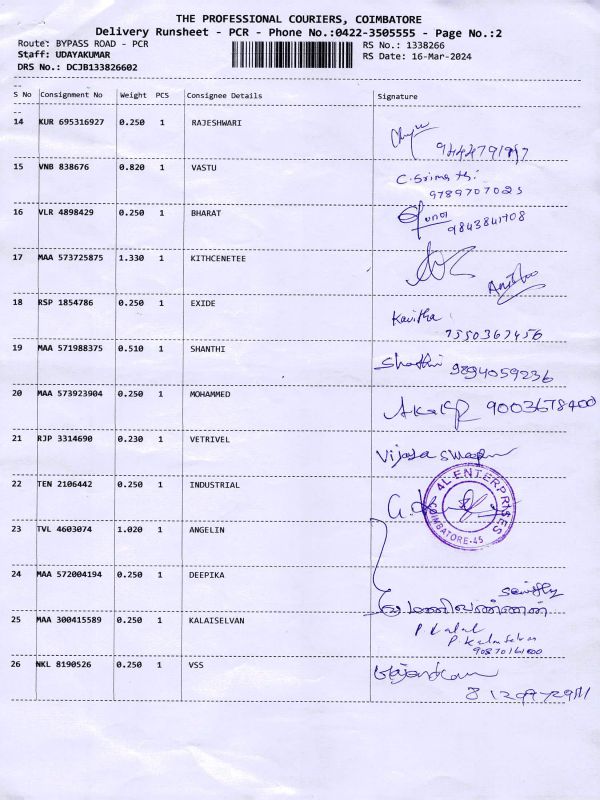 THE PROFESSIONAL COURIERS, COIMBATORE
Delivery Runsheet - PCR - Phone No.:0422-3505555 - Page No.:2
Route: BYPASS ROAD - PCR RS No.: 1338266
Staff: UDAYAKUMAR RS Date: 16-Mar-2024
DRS No.: DCJB133826602
S No Consignment No Weight PCS Consignee Details Signature
14 KUR 695316927 0.250 1 RAJESHWARI
15 VNB 838676 0.820 1 VASTU C. Srimathi
9789707023
16 VLR 4898429 0.250 1 BHARAT
9843841708
17 MAA 573725875 1.330 1 KITHCENETEE
18 RSP 1854786 0.250 1 EXIDE Kavitha
7550367456
19 MAA 571988375 0.510 1 SHANTHI Shanthi 9894059236
20 MAA 573923904 0.250 1 MOHAMMED 9003678400
21 RJP 3314690 0.230 1 VETRIVEL
22 TEN 2106442 0.250 1 INDUSTRIAL 4L ENTERPRISES
COIMBATORE-45
23 TVL 4603074 1.020 1 ANGELIN
24 MAA 572004194 0.250 1 DEEPIKA
25 MAA 300415589 0.250 1 KALAISELVAN
26 NKL 8190526 0.250 1 VSS